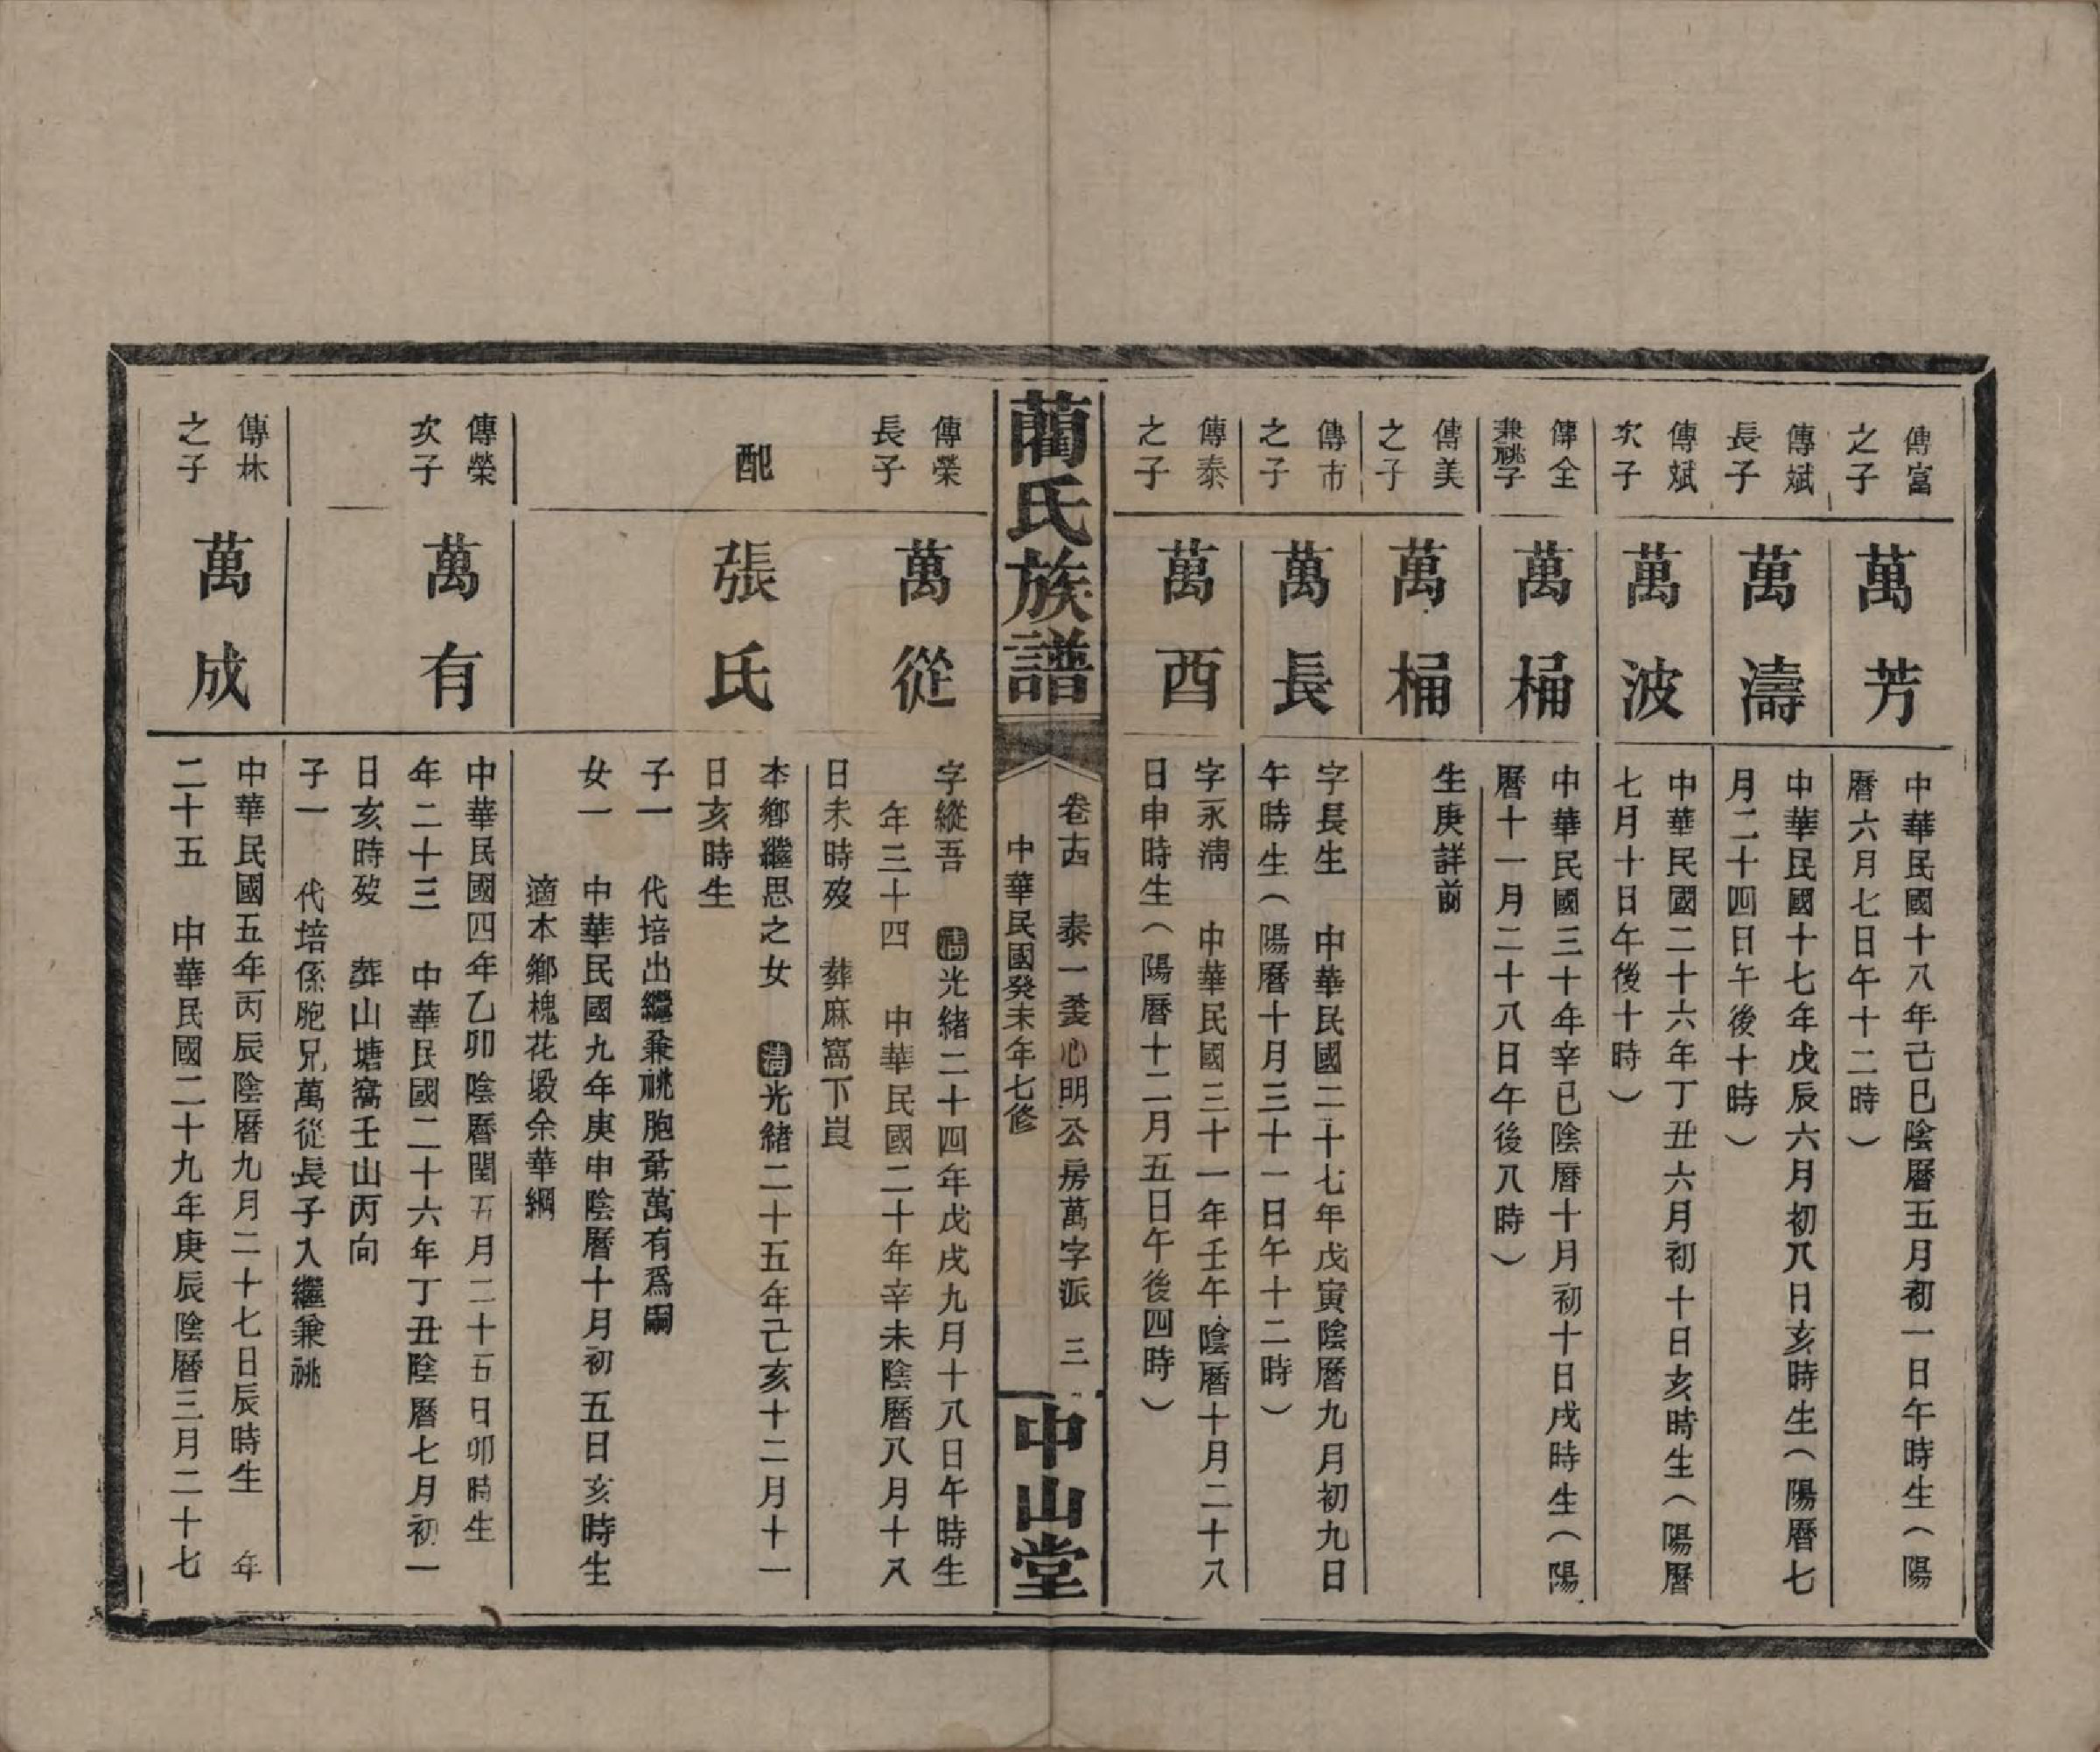 傳富
之子
萬芳
中華民國十八年己巳陰曆五月初一日午時生（陽
曆六月七日午十二時）
傳斌
長子
萬濤
中華民國十七年戊辰六月初八日亥時生（陽曆七
月二十四日午後十時）
傳斌
次子
萬波
中華民國二十六年丁丑六月初十日亥時生（陽曆
七月十日午後十時）
傳全
兼祧子
萬桶
中華民國三十年辛巳陰曆十月初十日戌時生（陽
曆十一月二十八日午後八時）
傳美
之子
萬桶
生庚詳前
傳市
之子
萬長
字長生　中華民國二十七年戊寅陰曆九月初九日
午時生（陽曆十月三十一日午十二時）
傳泰
之子
萬酉
字永淸　中華民國三十一年壬午陰曆十月二十八
日申時生（陽曆十二月五日午後四時）
藺氏族譜
卷十四　泰一㳟心明公房萬字派　三
中華民國癸未年七修
中山堂
傳榮
長子
萬從
字縱吾　淸光緒二十四年戊戌九月十八日午時生
年三十四　中華民國二十年辛未陰曆八月十八
日未時歿　葬麻窩下崀
配
張氏
本鄉繼思之女　淸光緒二十五年己亥十二月十一
日亥時生
子一　代培出繼兼祧胞弟萬有爲嗣
女一　中華民國九年庚申陰曆十月初五日亥時生
適本鄉槐花塅余華綱
傳榮
次子
萬有
中華民國四年乙卯陰曆閏五月二十五日卯時生
年二十三　中華民國二十六年丁丑陰曆七月初一
日亥時歿　葬山塘窩壬山丙向
子一　代培係胞兄萬從長子入繼兼祧
傳林
之子
萬成
中華民國五年丙辰陰曆九月二十七日辰時生　年
二十五　中華民國二十九年庚辰陰曆三月二十七